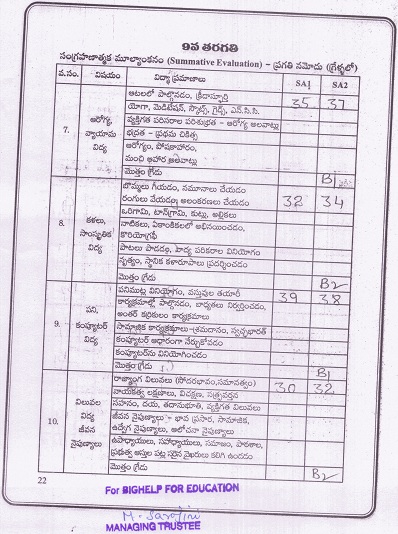 9వ తరగతి
సంగ్రహణాత్మక మూల్యాంకనం (Summative Evaluation) – ప్రగతి నమోదు (గ్రేడ్లలో)
వ.సం. విషయం విద్యా ప్రమాణాలు SA1 SA2
ఆటలలో పాల్గొనడం, క్రీడాస్ఫూర్తి 35 37
యోగా, మెడిటేషన్, స్కౌట్స్, గైడ్స్, ఎన్.సి.సి.
7. ఆరోగ్య, వ్యాయామ విద్య
వ్యక్తిగత పరిసరాల పరిశుభ్రత – ఆరోగ్య అలవాట్లు
భద్రత – ప్రథమ చికిత్స
ఆరోగ్యం, పోషకాహారం,
మంచి ఆహార అలవాట్లు
మొత్తం గ్రేడు B1
బొమ్మలు గీయడం, నమూనాలు చేయడం
రంగులు వేయడం, అలంకరణలు చేయడం 32 34
8. కళలు, సాంస్కృతిక విద్య
ఒరిగామి, టాన్‌గ్రామ్, కుట్లు, అల్లికలు
నాటికలు, ఏకాంకికలలో అభినయించడం,
కొరియోగ్రఫీ
పాటలు పాడడం, వాద్య పరికరాల వినియోగం
నృత్యం, స్థానిక కళారూపాలు ప్రదర్శించడం
మొత్తం గ్రేడు B2
పనిముట్ల వినియోగం, వస్తువుల తయారీ 39 38
కార్యక్రమాల్లో పాల్గొనడం, బాధ్యతలు నిర్వర్తించడం,
అంతర్ తరగతుల కార్యక్రమాలు
9. పని, కంప్యూటర్ విద్య
సామాజిక కార్యక్రమాలు-శ్రమదానం, స్వచ్ఛభారత్
కంప్యూటర్ ఆధారంగా నేర్చుకోవడం
కంప్యూటర్‌ను వినియోగించడం
మొత్తం గ్రేడు B1
రాజ్యాంగ విలువలు (సోదరభావం, సమానత్వం) 30 32
నాయకత్వ లక్షణాలు, విచక్షణ, సత్ప్రవర్తన
10. విలువల విద్య జీవన నైపుణ్యాలు
సహనం, దయ, తదానుభూతి, వ్యక్తిగత విలువలు
జీవన నైపుణ్యాలు – భావ ప్రసార, సామాజిక,
ఉద్వేగ నైపుణ్యాలు, ఆలోచనా నైపుణ్యాలు
ఉపాధ్యాయులు, సహాధ్యాయులు, సమాజం, పాఠశాల,
ప్రభుత్వ ఆస్తుల పట్ల సరైన వైఖరులు కలిగి ఉండడం
మొత్తం గ్రేడు B2
22
For BIGHELP FOR EDUCATION
M. Sarojini
MANAGING TRUSTEE